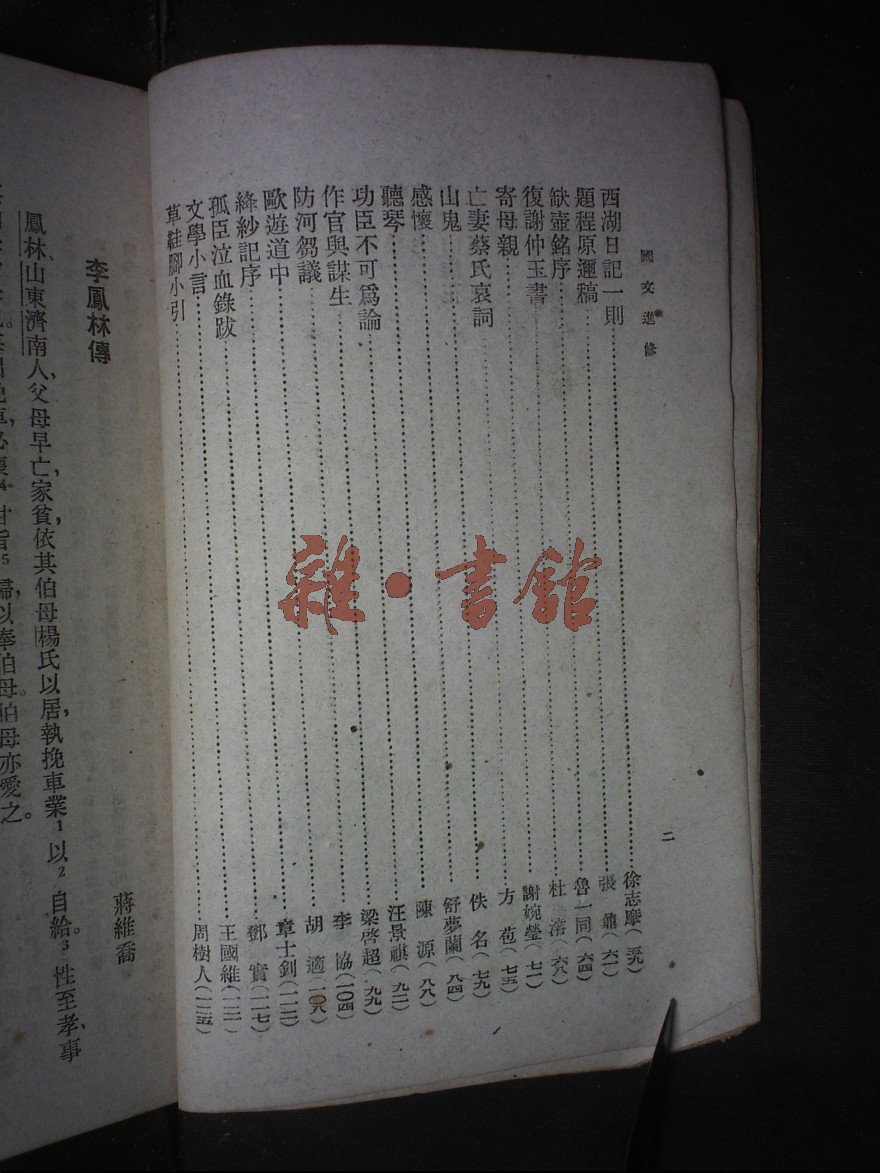 國文進修
二
西湖日記一則……徐志摩(五九)
題程原邇稿……張鼐(六一)
缺壺銘序……魯一同(六四)
復謝仲玉書……杜濬(六八)
寄母親……謝婉瑩(七一)
亡妻蔡氏哀詞……方苞(七五)
山鬼……佚名(七九)
感懷……舒夢蘭(八四)
聽琴……陳源(八八)
功臣不可爲論……汪景祺(九二)
作官與謀生……梁啓超(九九)
防河芻議……李協(一〇四)
歐遊道中……胡適(一〇八)
絳紗記序……章士釗(一一二)
孤臣泣血錄跋……鄧實(一一七)
文學小言……王國維(一二一)
草鞋腳小引……周樹人(一二五)
李鳳林傳
蔣維喬
鳳林、山東濟南人、父母早亡,家貧,依其伯母楊氏以居,執挽車業1以2自給。3性至孝,事
甘旨5歸,以奉伯母。伯母亦愛之。
雜·書館